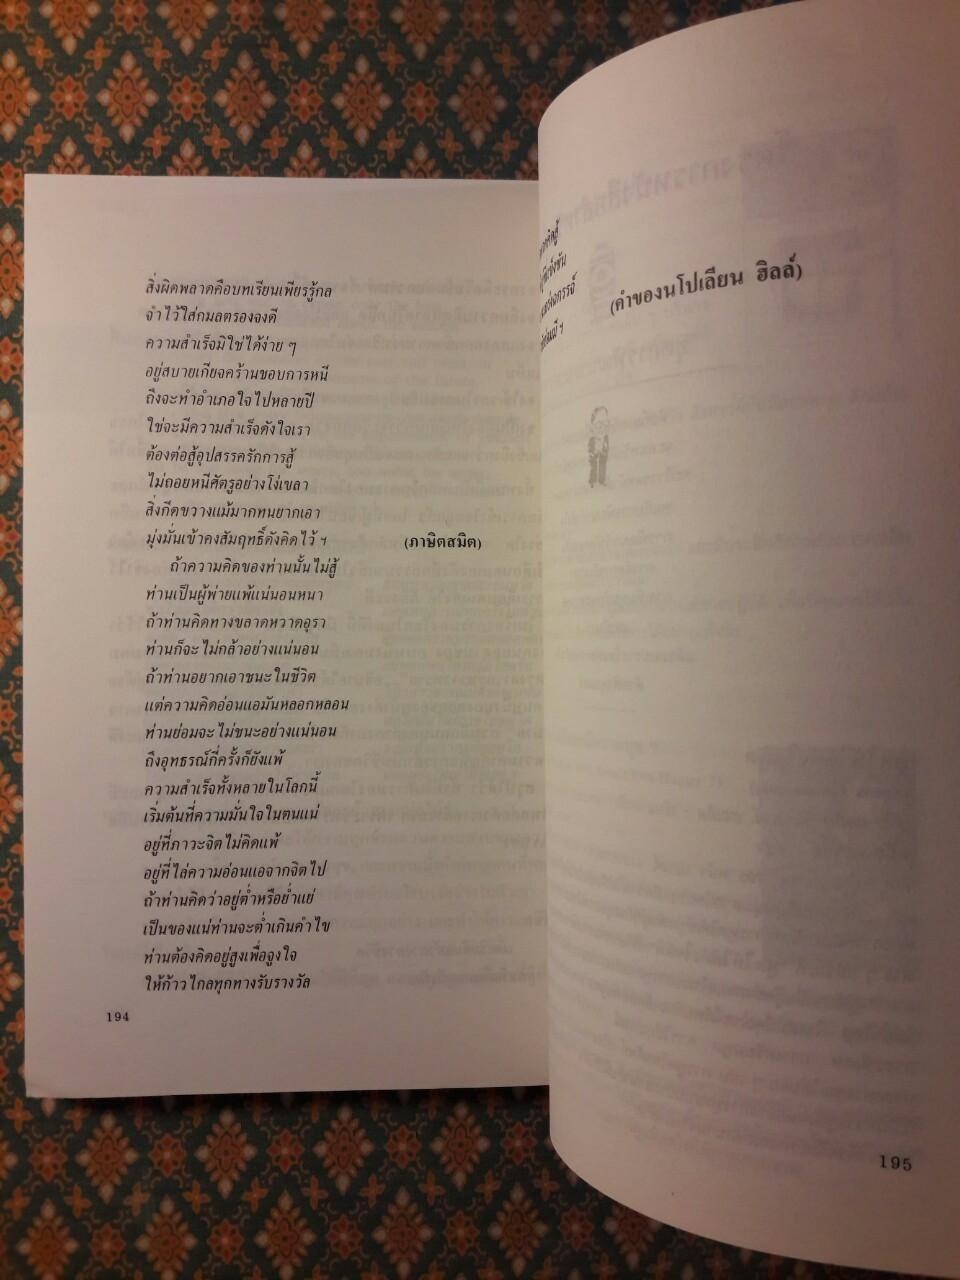 สิ่งผิดพลาดคือบทเรียนเพียรรู้กล
จำไว้ใส่กมลตรองจงดี
ความสำเร็จมิใช่ได้ง่าย ๆ
อยู่สบายเกียจคร้านขอบการหนี
ถึงจะทำอำเภอใจไปหลายปี
ใช่จะมีความสำเร็จดังใจเรา
ต้องต่อสู้อุปสรรครักการสู้
ไม่ถอยหนีศัตรูอย่างโง่เขลา
สิ่งกีดขวางแม้มากทนยากเอา
มุ่งมั่นเข้าคงสัมฤทธิ์ดังคิดไว้ ฯ (ภาษิตสมิต)
ถ้าความคิดของท่านนั้นไม่สู้
ท่านเป็นผู้พ่ายแพ้แน่นอนหนา
ถ้าท่านคิดทางขลาดหวาดอุรา
ท่านก็จะไม่กล้าอย่างแน่นอน
ถ้าท่านอยากเอาชนะในชีวิต
แต่ความคิดอ่อนแอมันหลอกหลอน
ท่านย่อมจะไม่ชนะอย่างแน่นอน
ถึงอุทธรณ์กี่ครั้งก็ยังแพ้
ความสำเร็จทั้งหลายในโลกนี้
เริ่มต้นที่ความมั่นใจในตนแน่
อยู่ที่ภาวะจิตไม่คิดแพ้
อยู่ที่ไล่ความอ่อนแอจากจิตไป
ถ้าท่านคิดว่าอยู่ต่ำหรือย่ำแย่
เป็นของแน่ท่านจะต่ำเกินคำไข
ท่านต้องคิดอยู่สูงเพื่อจูงใจ
ให้ก้าวไกลทุกทางรับรางวัล
194
(คำของนโปเลียน ฮิลล์)
195